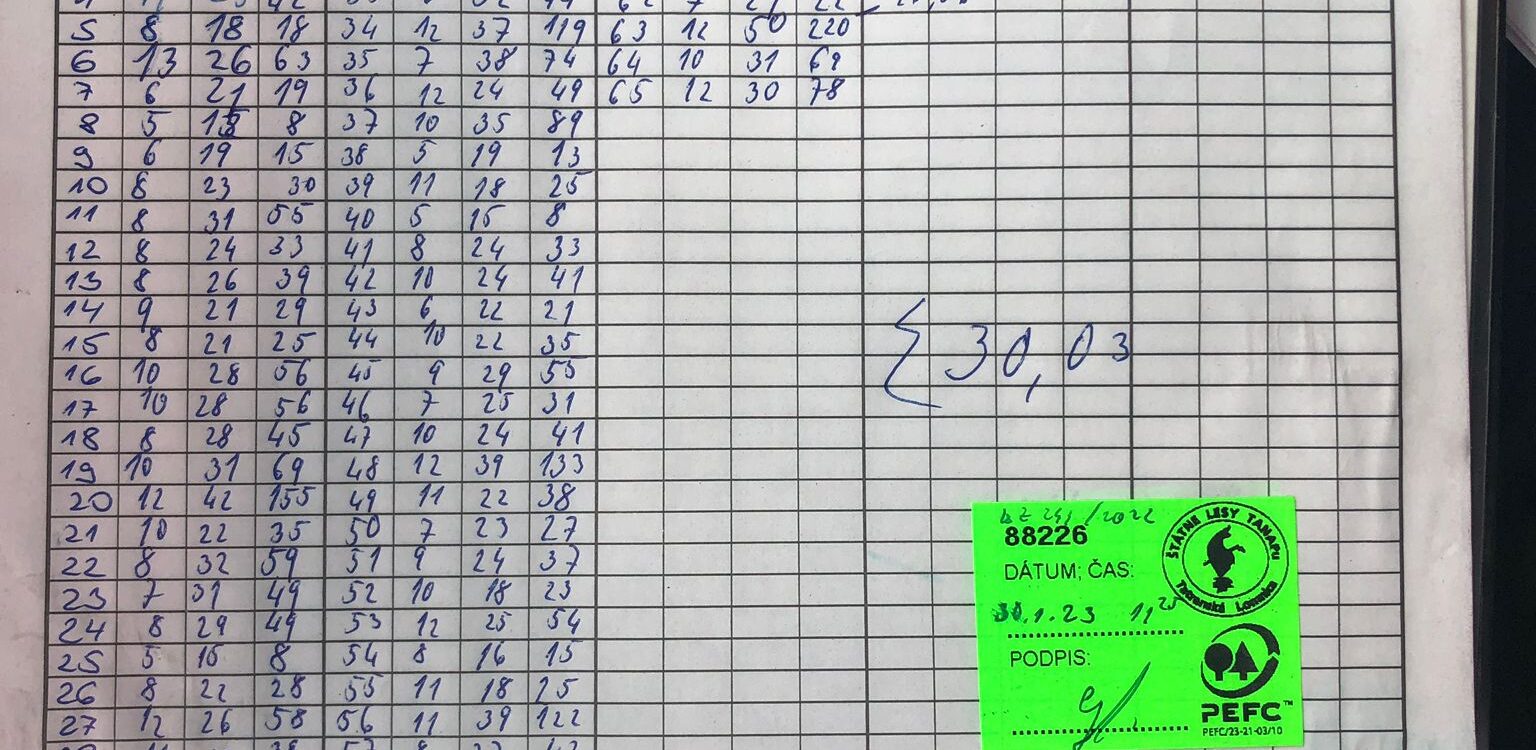 5 8 18 18 34 12 37 119 63 12 50 220
6 13 26 63 35 7 38 74 64 10 31 69
7 6 21 19 36 12 24 49 65 12 30 78
8 5 8 37 10 35 89
9 6 19 15 38 5 19 13
10 8 23 30 39 11 18 25
11 8 31 55 40 5 15 8
12 8 24 33 41 8 24 33
13 8 26 39 42 10 24 41
14 9 21 29 43 6 22 21
15 8 21 25 44 10 22 35
16 10 28 56 45 9 29 55
17 10 28 56 46 7 25 31
18 8 28 45 47 10 24 41
19 10 31 69 48 12 39 133
20 12 42 155 49 11 22 38
21 10 22 35 50 7 23 27
22 8 32 59 51 9 24 37
23 7 31 49 52 10 18 23
24 8 29 49 53 12 25 54
25 5 15 8 54 8 16 15
26 8 22 28 55 11 18 25
27 12 26 58 56 11 39 122
30,03
88226
ŠTÁTNE LESY TANAPu
Tatranská Lomnica
DÁTUM; ČAS:
30.1.23 11 25
PODPIS:
PEFC™
PEFC/23-21-03/10